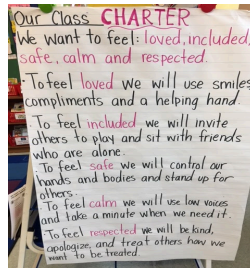 Our Class CHARTER
We want to feel: loved, included,
safe, calm and respected.
·To feel loved we will use smiles,
compliments and a helping hand.
·To feel included we will invite
others to play and sit with friends
who are alone.
·To feel safe we will control our
hands and bodies and stand up for
others.
·To feel calm we will use low voices
and take a minute when we need it.
·To feel respected we will be kind,
apologize, and treat others how we
want to be treated.